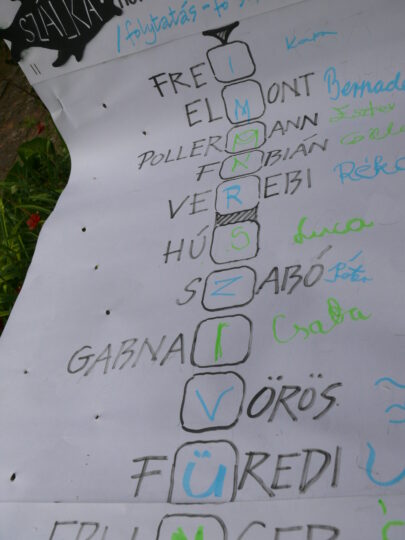 SZÁLKA
/folytatás
FREI
ELMONT Bernade
POLLERMANN Eszter
FÁBIÁN
VEREBI Réka
HÚS Luca
SZABÓ Péter
GABNAI Csaba
VÖRÖS
FÜREDI